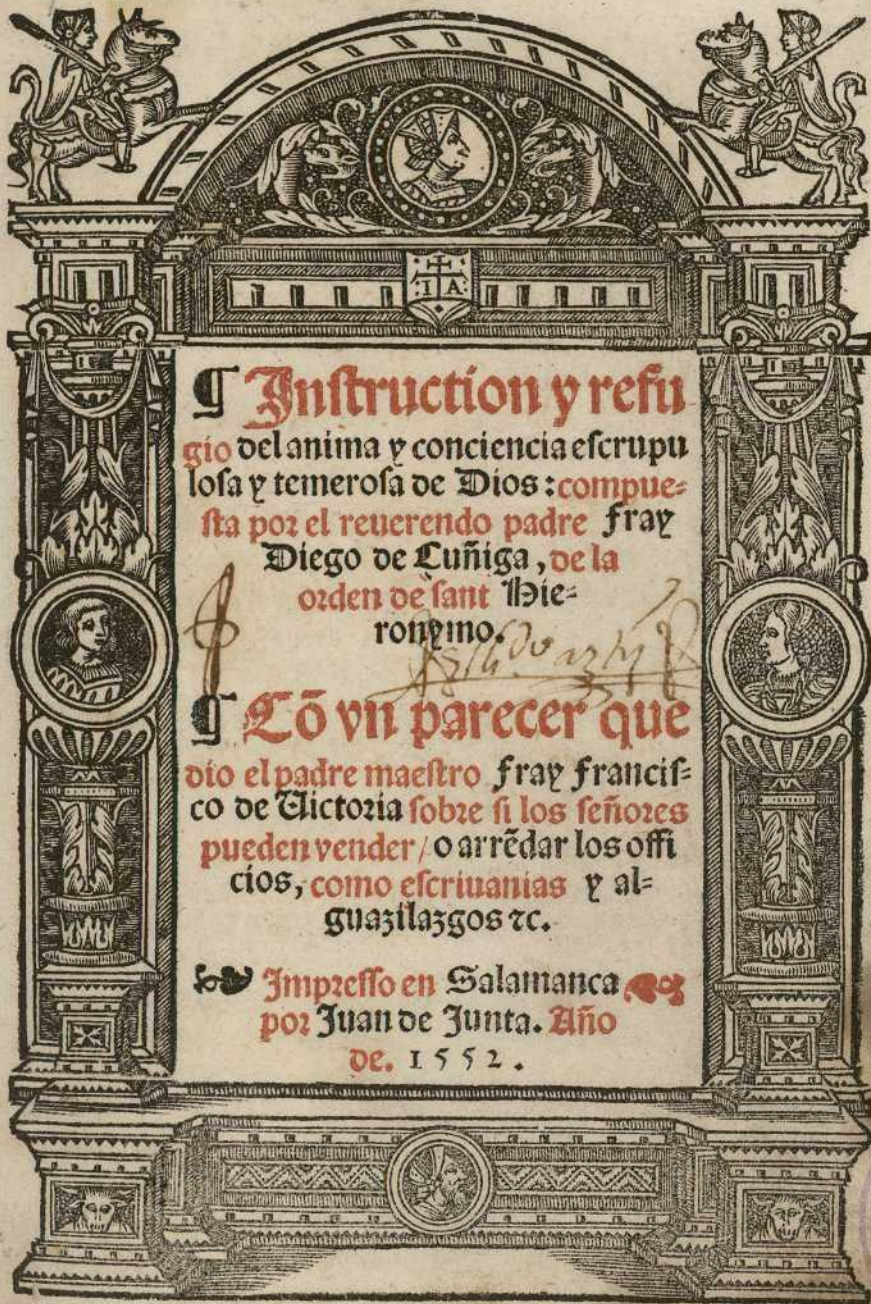 I A
¶ Instruction y refu
gio del anima y conciencia escrupu
losa y temerosa de Dios: compue-
sta por el reuerendo padre fray
Diego de Çuñiga, de la
orden de sant Hie-
ronymo.
¶ Cõ vn parecer que
dio el padre maestro fray francis-
co de Uictoria sobre si los señores
pueden vender/ o arrẽdar los offi
cios, como escriuanias y al-
guazilazgos ⁊c.
Impresso en Salamanca
por Juan de Junta. Año
de. 1552.